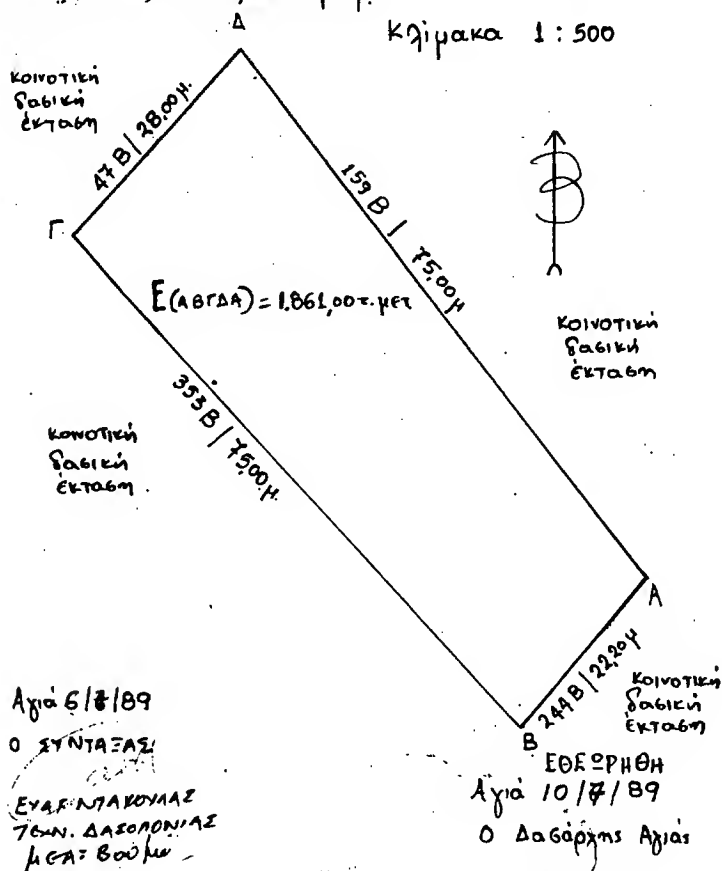 Δ
Κλίμακα 1:500
κοινοτική
δασική
έκταση
47 Β / 28,00 μ.
159 Β / 75,00 μ
Β
Γ
Ε(ΑΒΓΔΑ) = 1.861,00 τ.μετ
κοινοτική
δασική
έκταση
353 Β / 75,00 μ.
κοινοτική
δασική
έκταση.
Α
244 Β / 22,20 μ
κοινοτική
δασική
έκταση
Β
Αγιά 6/7/89
Ο ΣΥΝΤΑΞΑΣ
ΕΥΑΓ. ΝΤΑΚΟΥΛΑΣ
ΤΕΧΝ. ΔΑΣΟΠΟΝΙΑΣ
ΕΘΕΩΡΗΘΗ
Αγιά 10/7/89
Ο Δασάρχης Αγιάς